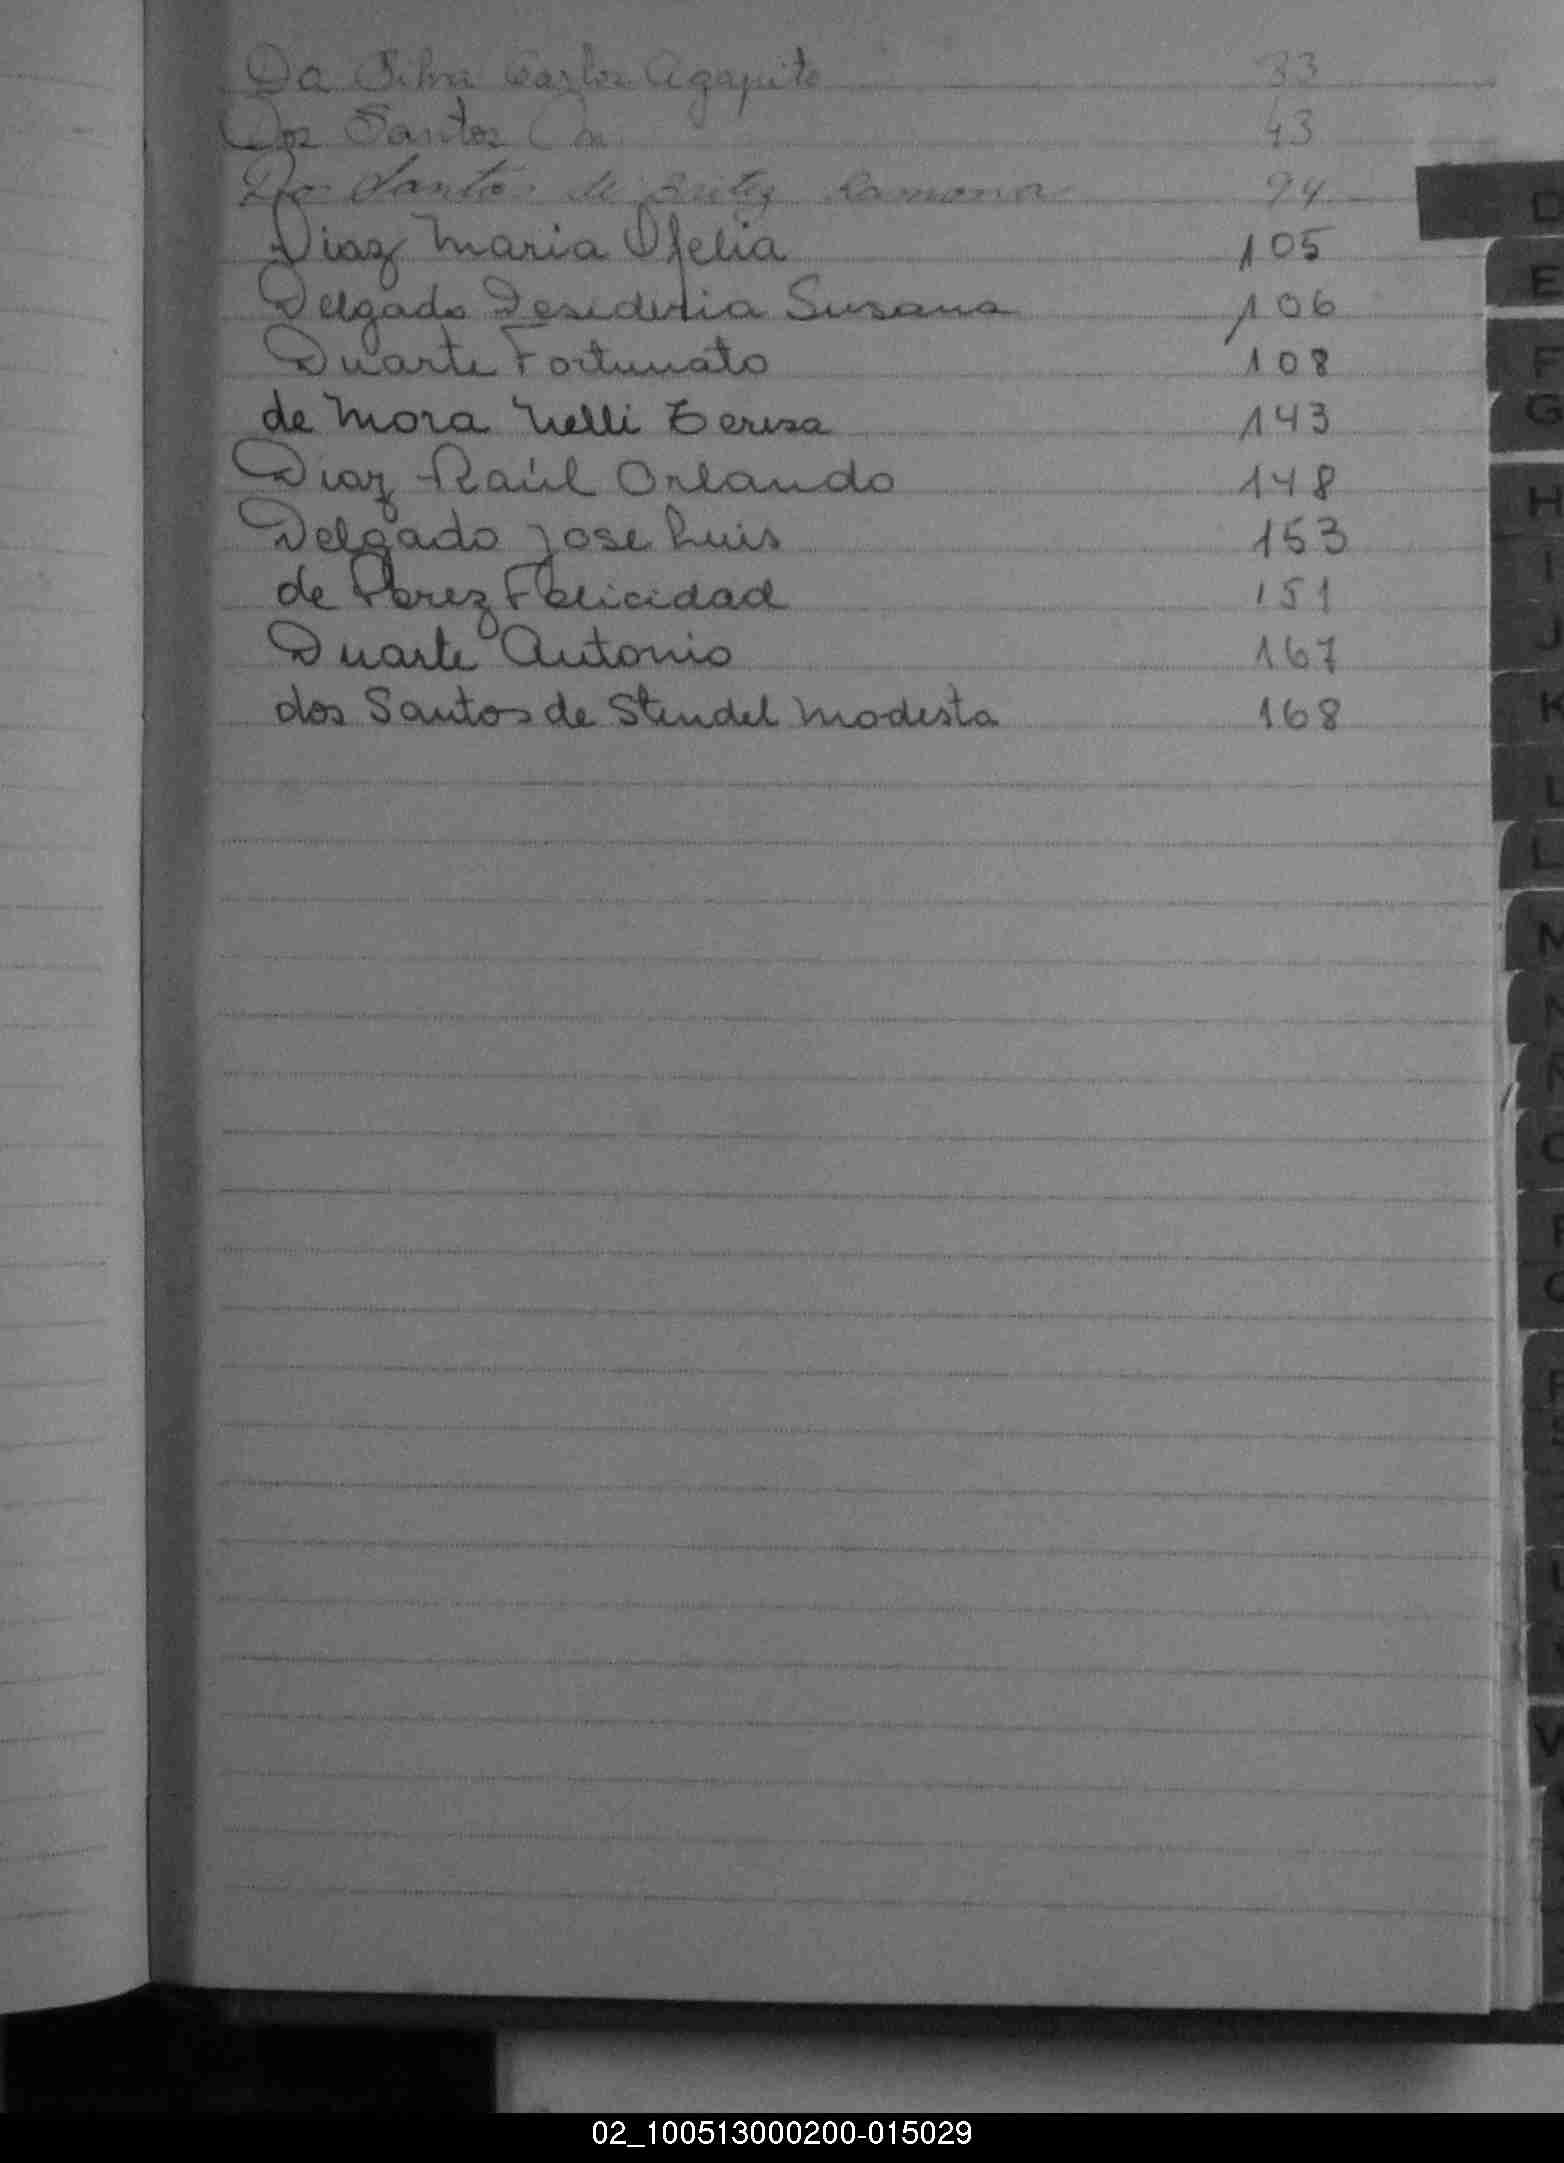 Da Silva Carlos Agapito 33
Dos Santos 43
Dos Santos de Britez Ramona 94
Diaz Maria Ofelia 105
Delgado Desideria Susana 106
Duarte Fortunato 108
de Mora Nelli Teresa 143
Diaz Raúl Orlando 148
Delgado Jose Luis 153
de Perez Felicidad 151
Duarte Antonio 167
dos Santos de Stendel Modesta 168
D
E
F
G
H
I
J
K
L
L
M
N
O
P
V
02_100513000200-015029